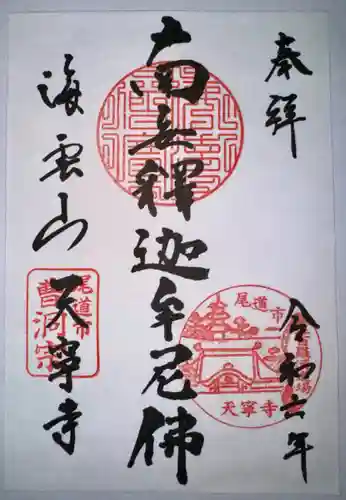 奉拝
令和六年
南無釋迦牟尼佛
海雲山
天寧寺
尾道市
曹洞宗
尾道市
天寧寺